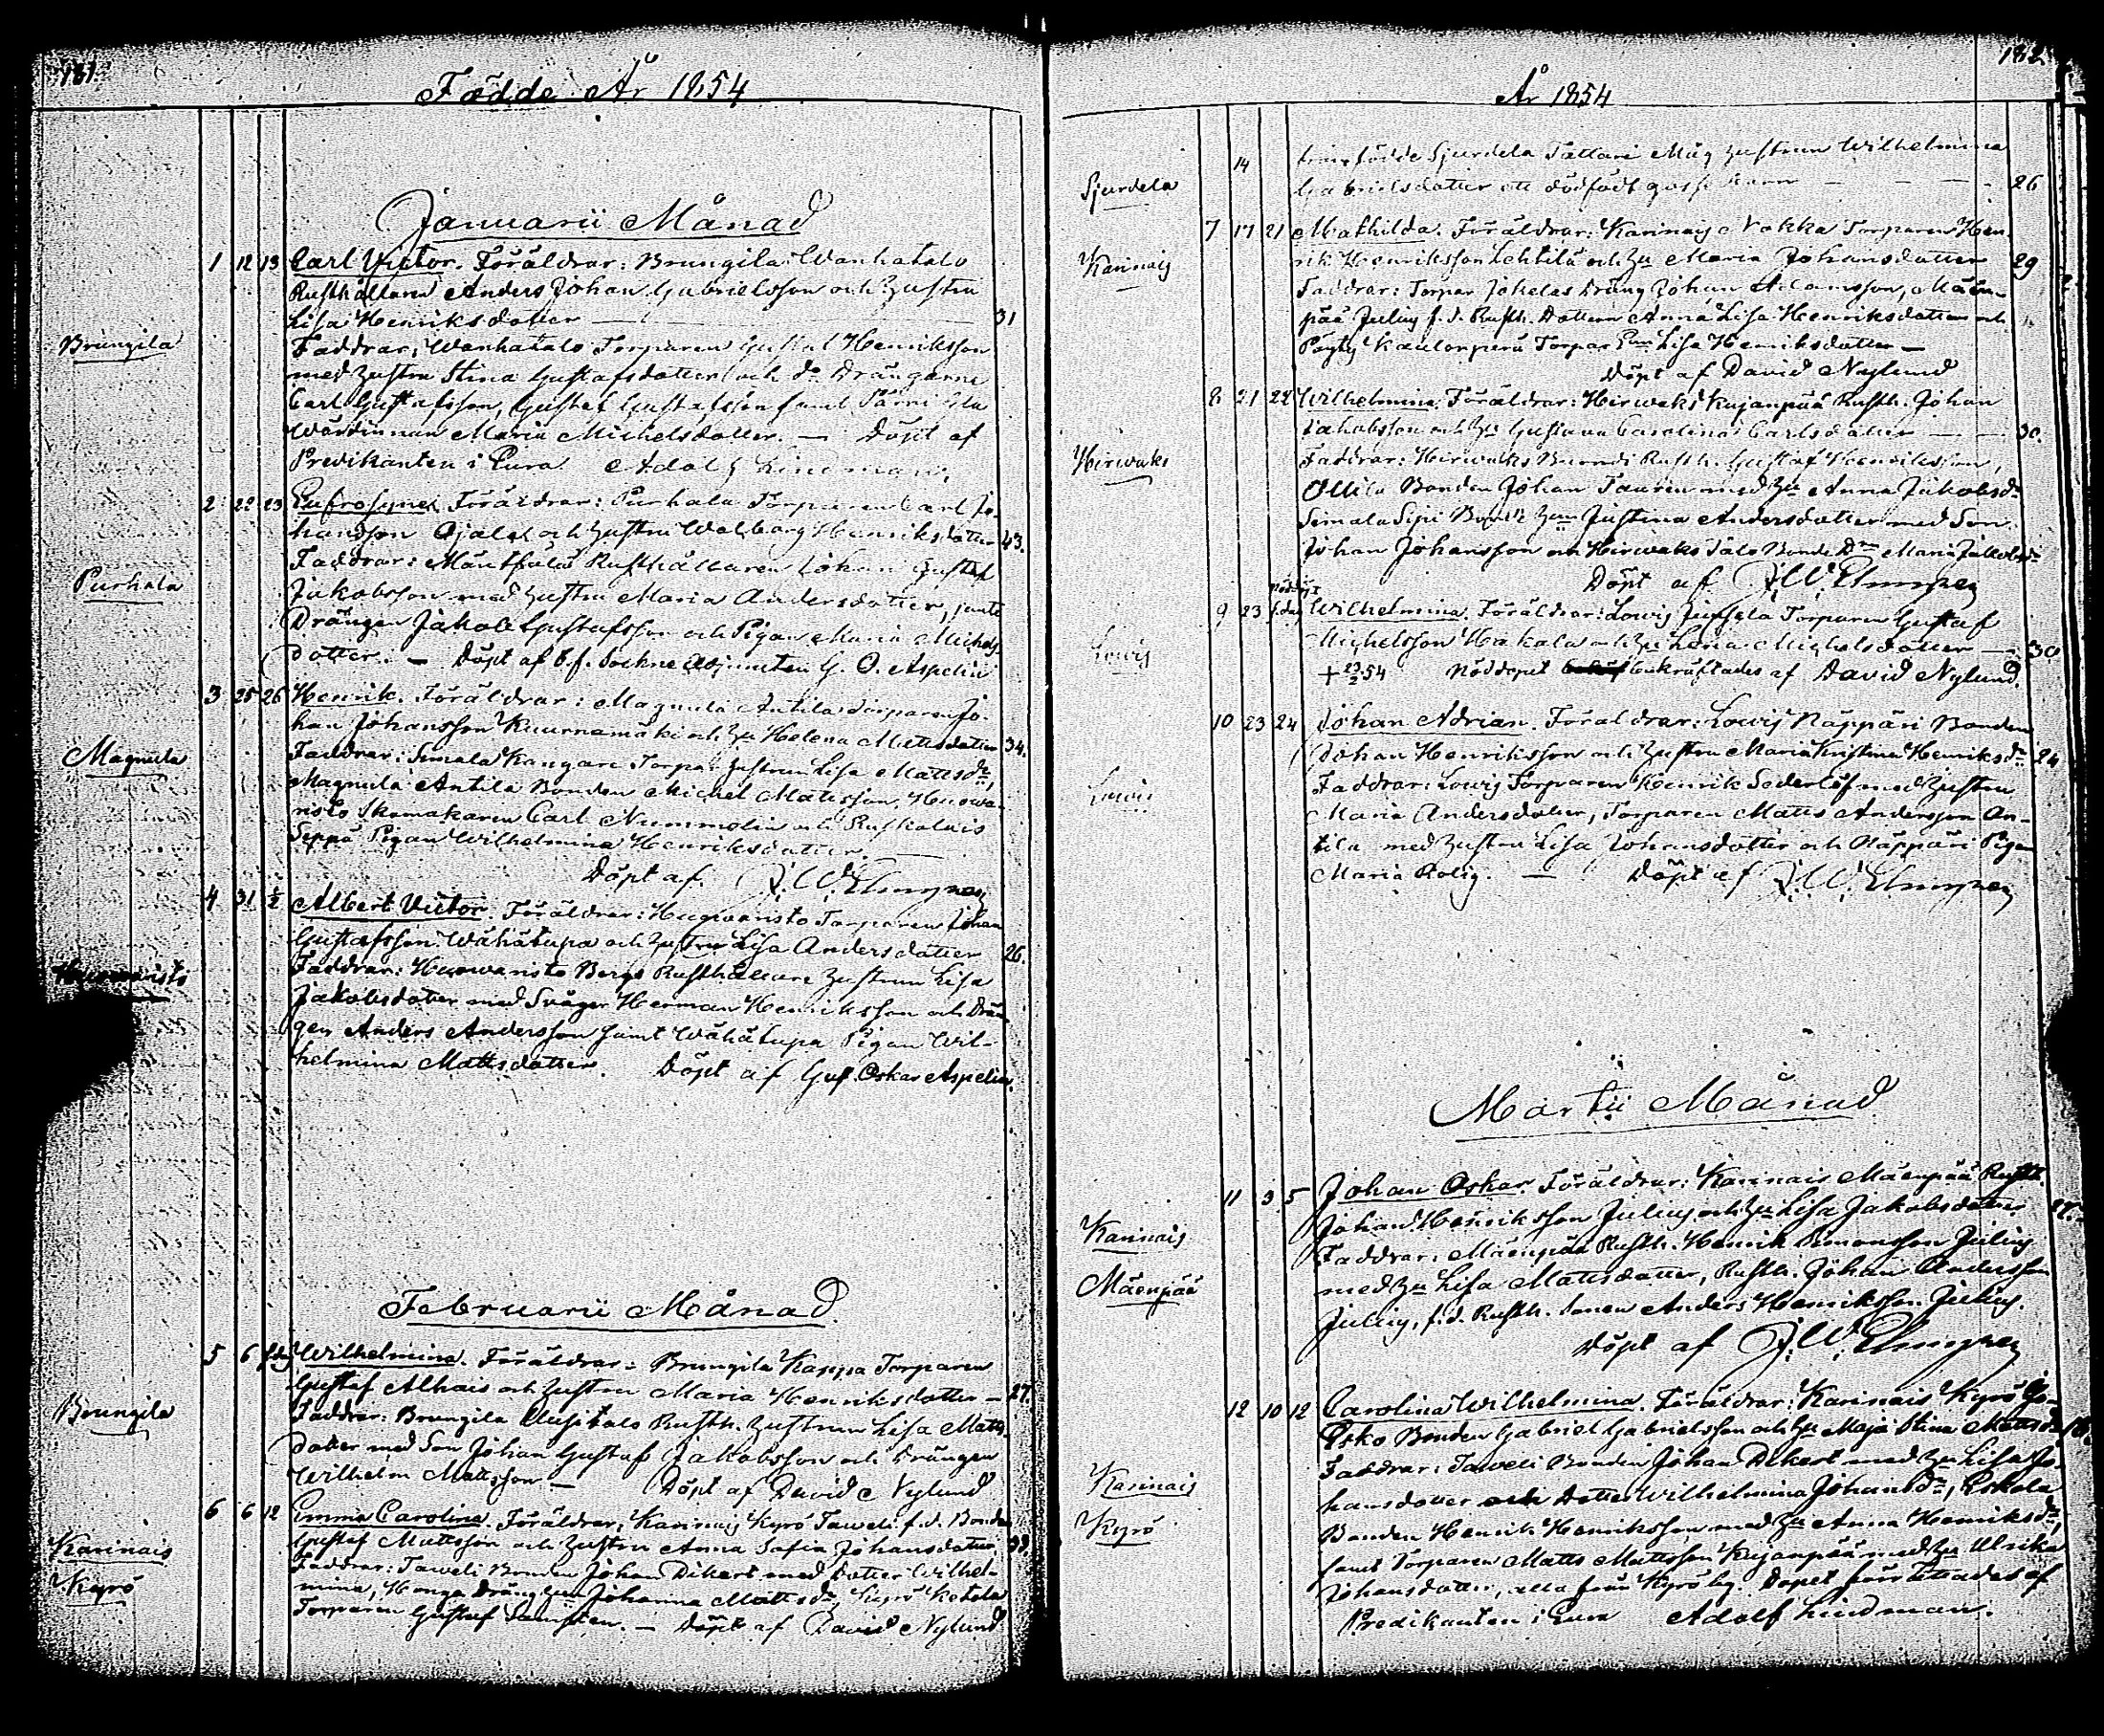 181.
Födde År 1854
Januarii Månad
Brungila
1 12 13 Carl Victor. Föräldrar: Brungila Wanhatalo
Rusthållaren Anders Johan Gabrielsson och hustru
Lisa Henriksdotter — 31
Faddrar: Wanhatalo Torparen Gustaf Henriksson
med hustru Stina Gustafsdotter och do Drängarne
Carl Gustafsson, Gustaf Gustafsson samt
Wärdinnan Maria Michelsdotter. — Döpt af
Predikanten i Eura Adolf Lindman.
Purhala
2 22 23 Eufrosyne. Föräldrar: Purhala Torparen Carl Jo-
hansson Ojala och hustru Walborg Henriksdotter 43.
Faddrar: Mäntsälä Rusthållaren Johan Gustaf
Jakobsson med hustru Maria Andersdotter, jemte
Drängen Jakob Gustafsson och Pigan Maria Michels
dotter. — Döpt af t.f. Sockne Adjuncten G. O. Aspelin
Magnula
3 25 26 Henrik. Föräldrar: Magnula Antila Torparen Jo-
han Johansson Kuurnamäki och hu Helena Mattsdotter 34.
Faddrar: Simala Kangare Torpar hustrun Lisa Mattsdr,
Magnula Antila Bonden Michel Mattsson, Huowa-
risto Skomakaren Carl Nummelin och
Seppä Pigan Wilhelmina Henriksdotter. —
Döpt af F. W. Elmgren
Huowaristo
4 31 1/2 Albert Victor. Föräldrar: Huowaristo Torparen Johan
Gustafsson Wähätupa och hustru Lisa Andersdotter 26.
Faddrar: Huowaristo Bergo Rusthållare hustrun Lisa
Jakobsdotter med Svåger Herman Henriksson och Drän-
gen Anders Andersson samt Wähätupa Pigan Wil-
helmina Mattsdotter. Döpt af Gust. Oskar Aspelin.
Februarii Månad
Brungila
5 6 s.dag Wilhelmina. Föräldrar: Brungila Kappa Torparen
Gustaf Alhais och hustru Maria Henriksdotter — 27.
Faddrar: Brungila Uusitalo Rusth. hustrun Lisa Matts
dotter med Son Johan Gustaf Jakobsson och Drängen
Wilhelm Mattsson — Döpt af David Nylund
Karinais
Kyrö
6 6 12 Emma Carolina. Föräldrar: Karinais Kyrö Taweli f.d. Bonden
Gustaf Mattsson och hustru Anna Sofia Johansdotter 39.
Faddrar: Taweli Bonden Johan Dikert med Dotter Wilhel-
mina, Honga Dräng hun Johanna Mattsdr, Kyrö Ketola
Torparen Gustaf — Döpt af David Nylund
182.
År 1854
Sjurdela
14 Sjurdela Tattari hustrun Wilhelmina
Gabrielsdotter ett dödfödt gosse barn — 26
Karinais
7 17 21 Mathilda. Föräldrar: Karinais Nokka Torparen Hen-
rik Henriksson Lehtilä och hu Maria Johansdotter 29
Faddrar: Torpar Jokelas Dräng Johan Adamsson, Mäen-
pää Julius f.d. Rusth. Dottern Anna Lisa Henriksdotter och
Pöytis Torpar Lisa Henriksdotter —
Döpt af David Nylund
Hirwaks
8 21 22 Wilhelmina. Föräldrar: Hirwaks Kujanpää Rusth. Johan
Jakobsson och hu Gustava Carolina Carlsdotter — 30.
Faddrar: Hirwaks Rusth. Gustaf Henriksson,
Ollila Bonden Johan Tauren med hu Anna Jakobsdr
Simala Sipi Bonde hun Justina Andersdotter med Son
Johan Johansson och Hirwaks Talo Bonde Maria Jakobsdr
Döpt af F. W. Elmgren
Lowis
9 23 Nöddöpt s.dag Wilhelmina. Föräldrar: Lowis Junsela Torparen Gustaf
Michelsson Hakala och hu Lena Michelsdotter — 30
+ 23/2 54 Nöddopet bekräftades af David Nylund.
Lowis
10 23 24 Johan Adrian. Föräldrar: Lowis Näppäri Bonden
Johan Henriksson och hustru Maria Kristina Henriksdr 24
Faddrar: Lowis Torparen Henrik Söderlöf med hustru
Maria Andersdotter, Torparen Matts Andersson An-
tila med hustru Lisa Johansdotter och Näppäri Pigan
Maria Rolig. — Döpt af F. W. Elmgren
Martii Månad
Karinais
Mäenpää
11 3 5 Johan Oskar. Föräldrar: Karinais Mäenpää Rusth.
Johan Henriksson Julius och hu Lisa Jakobsdotter 27.
Faddrar: Mäenpää Rusth. Henrik Simonsson Julius
med hu Lisa Mattsdotter, Rusth. Johan Andersson
Julius, f.d. Rusth. Sonen Anders Henriksson Julius.
Döpt af F. W. Elmgren
Karinais
Kyrö
12 10 12 Carolina Wilhelmina. Föräldrar: Karinais Kyrö
Esko Bonden Gabriel Gabrielsson och hu Maja Stina Mattsdr
Faddrar: Taweli Bonden Johan Dikert med hu Lisa Jo-
hansdotter och Dotter Wilhelmina Johansdr, Eskola
Bonden Henrik Henriksson med hu Anna Henriksdr,
samt Torparen Matts Mattsson Kujanpää med hu Ulrika
Johansdotter, alla från Kyrö by. Dopet förrättades af
Predikanten i Eura Adolf Lindman.